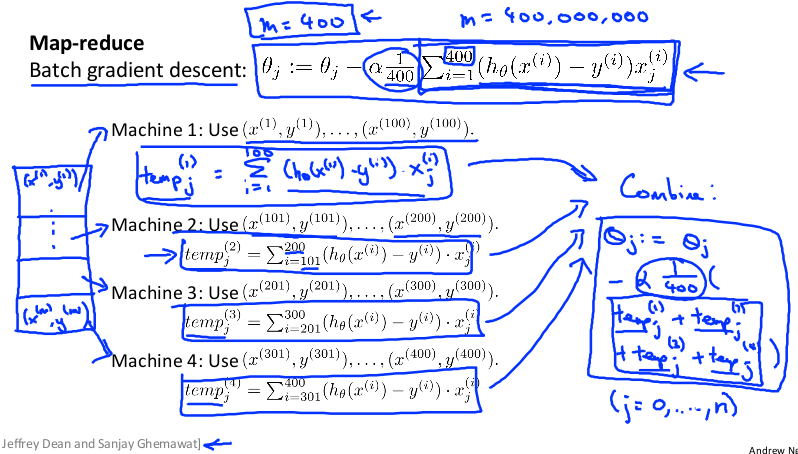 m = 400 ← m = 400,000,000
Map-reduce
Batch gradient descent: θ_j := θ_j − α 1/400 ∑_{i=1}^{400} (h_θ(x^{(i)}) − y^{(i)}) x_j^{(i)} ←
Machine 1: Use (x^{(1)}, y^{(1)}), . . . , (x^{(100)}, y^{(100)}).
(x^{(1)}, y^{(1)})
temp_j^{(1)} = ∑_{i=1}^{100} (h_θ(x^{(i)}) − y^{(i)}) · x_j^{(i)}
Machine 2: Use (x^{(101)}, y^{(101)}), . . . , (x^{(200)}, y^{(200)}).
temp_j^{(2)} = ∑_{i=101}^{200} (h_θ(x^{(i)}) − y^{(i)}) · x_j^{(i)}
Machine 3: Use (x^{(201)}, y^{(201)}), . . . , (x^{(300)}, y^{(300)}).
temp_j^{(3)} = ∑_{i=201}^{300} (h_θ(x^{(i)}) − y^{(i)}) · x_j^{(i)}
(x^{(m)}, y^{(m)})
Machine 4: Use (x^{(301)}, y^{(301)}), . . . , (x^{(400)}, y^{(400)}).
temp_j^{(4)} = ∑_{i=301}^{400} (h_θ(x^{(i)}) − y^{(i)}) · x_j^{(i)}
Combine:
θ_j := θ_j
− α 1/400 (
temp_j^{(1)} + temp_j^{(2)}
+ temp_j^{(3)} + temp_j^{(4)} )
(j = 0, ...., n)
Jeffrey Dean and Sanjay Ghemawat] ←
Andrew Ng